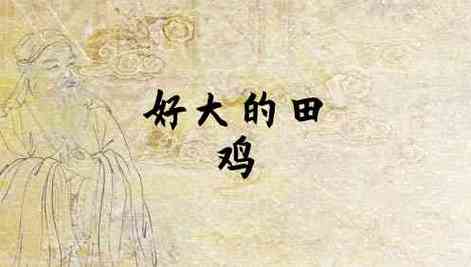 好大的田
鸡